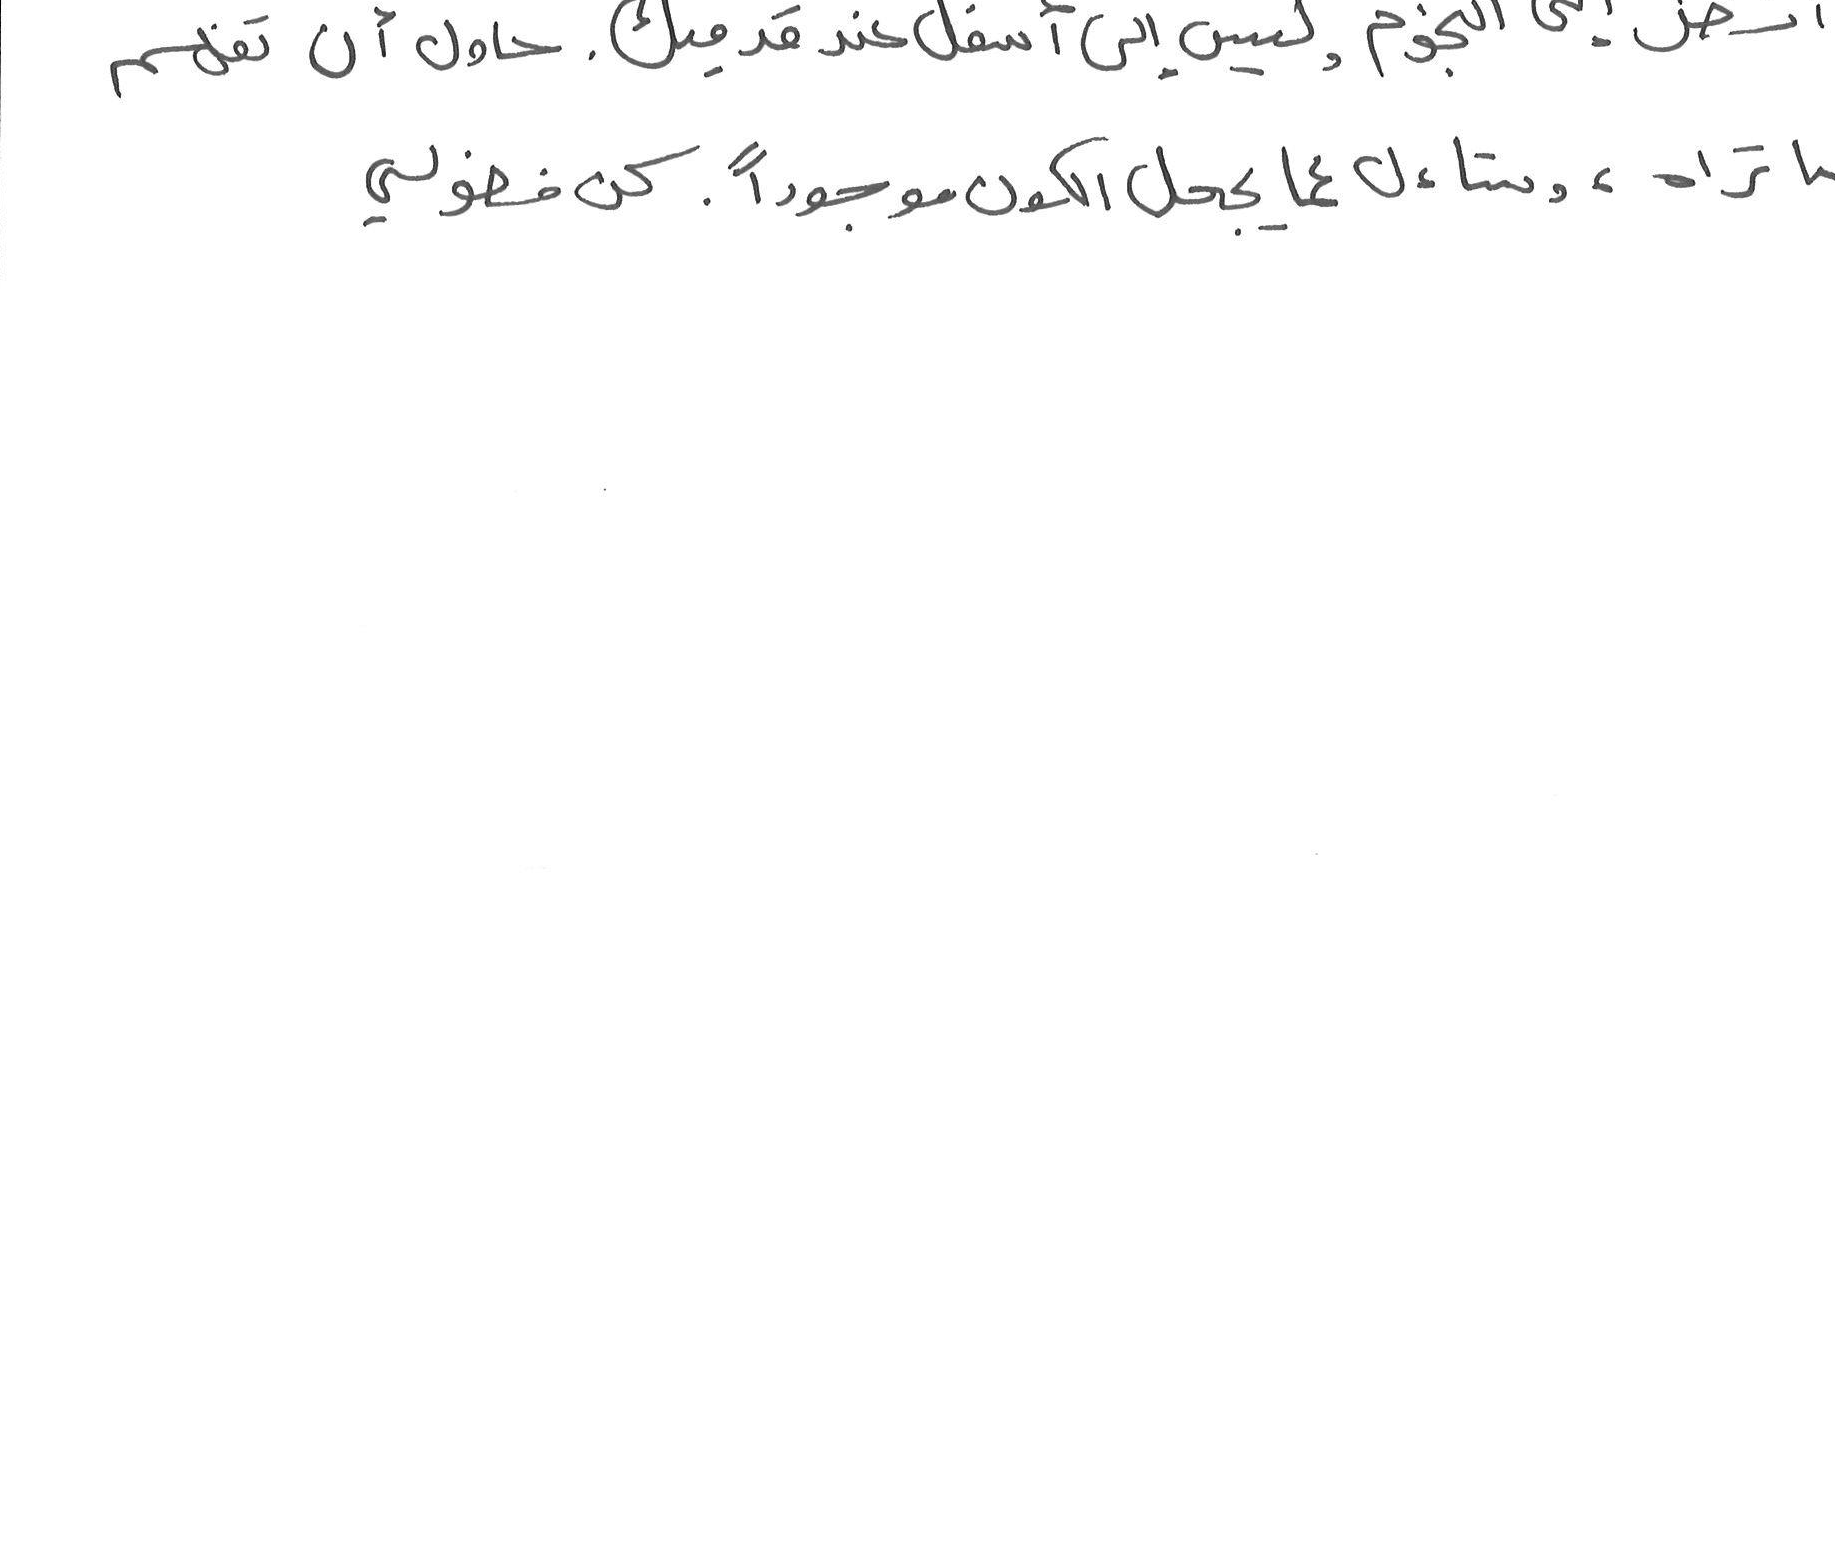 انظر إلى النجوم وليس إلى أسفل عند قدميك. حاول أن تفهم
ما تراه، وستاءل عما يجعل الكون موجوداً. كن فضولي